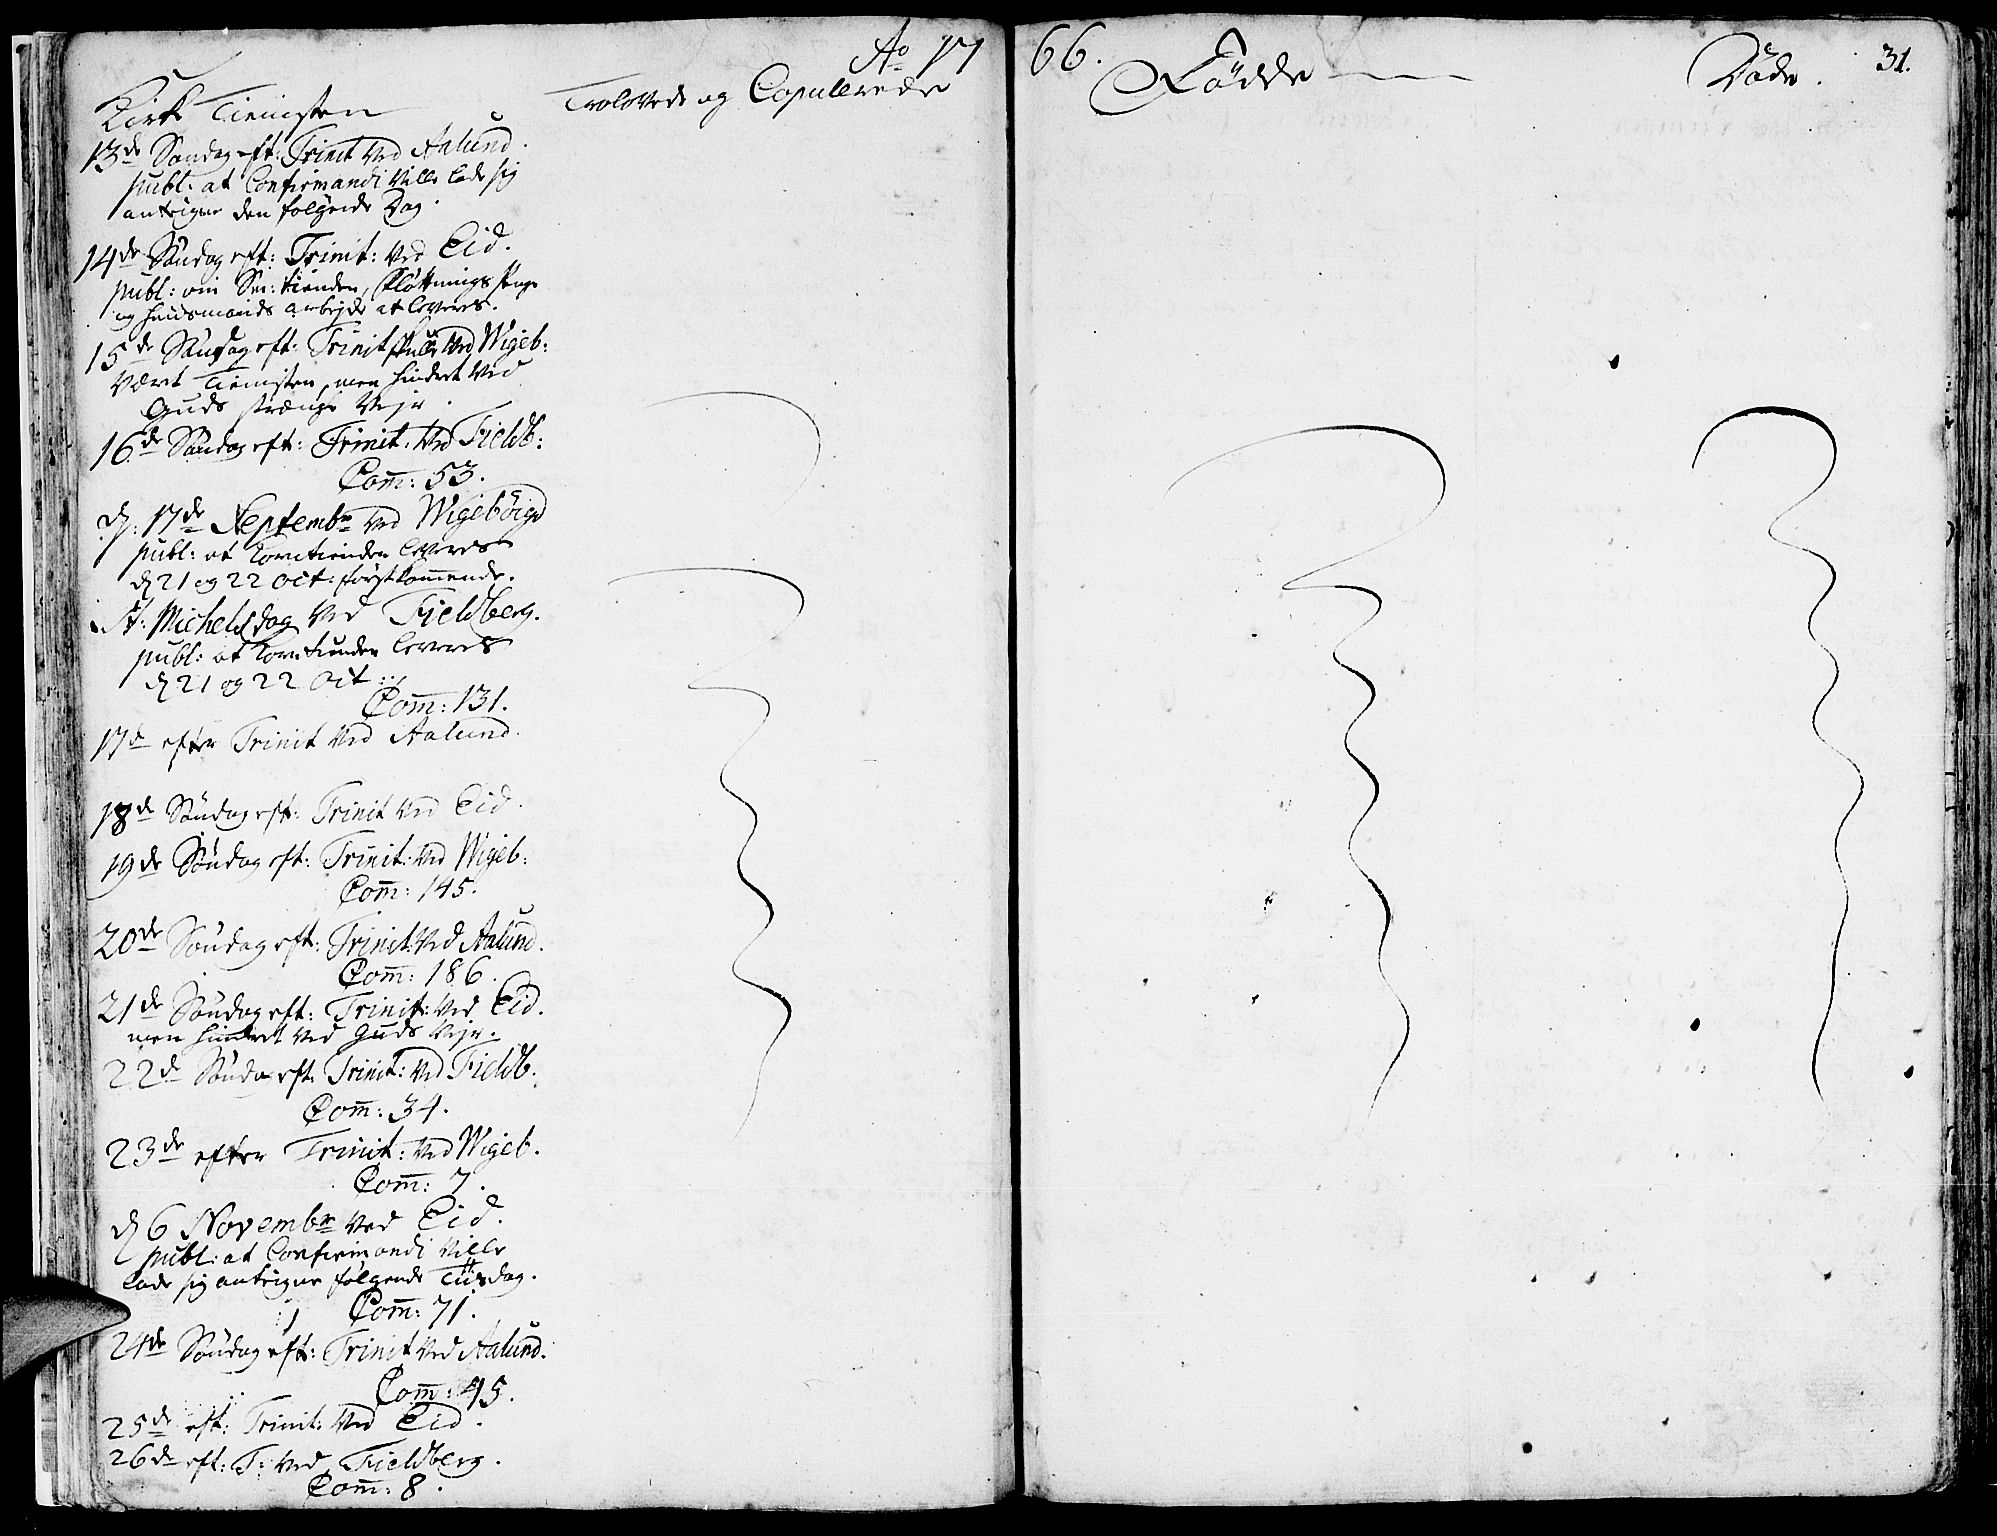 Ao 1766.
31.
Kirk Tienisten
Trolovede og Copulerede
Födde
Döde.
13de Sondag eft: Trinit ved Aalund.
publ: at Confirmandi ville lade sig
anteigne den folgende Dag.
14de Söndag eft: Trinit: ved Eid.
publ: om Sm: tienden, Skøttnings penge
og huusmands arbejde at leveres.
15de Söndag eft: Trinit skulle ved Wigeb:
været Tienisten, men hindret ved
Guds strænge Vejr.
16de Söndag eft: Trinit: ved Fieldb:
Com̄: 53.
d: 17de Septembr ved Wigebörgd
publ: at Korntienden leveres
d 21 og 22 Oct: förstkom̄ende.
St: Michelsdag ved Fieldberg.
publ: at Korntienden leveres
d 21 og 22 Oct:
Com̄: 131.
17de efter Trinit ved Aalund.
18de Söndag eft: Trinit ved Eid.
19de Söndag eft: Trinit: ved Wigeb:
Com̄: 145.
20de Söndag eft: Trinit: ved Aalund.
Com̄: 186.
21de Söndag eft: Trinit: ved Eid.
men hindret ved Guds Vejr.
22de Söndag eft. Trinit: ved Fieldb.
Com̄: 34.
23de efter Trinit: ved Wigeb.
Com̄: 7.
d 6 Novembr ved Eid.
publ: at Confirmandi ville
lade sig anteigne følgende Tiisdag.
Com̄: 71.
24de Söndag eft: Trinit ved Aalund.
Com̄: 45.
25de eft: Trinit: ved Eid.
26de eft: T: ved Fieldberg.
Com̄: 8.